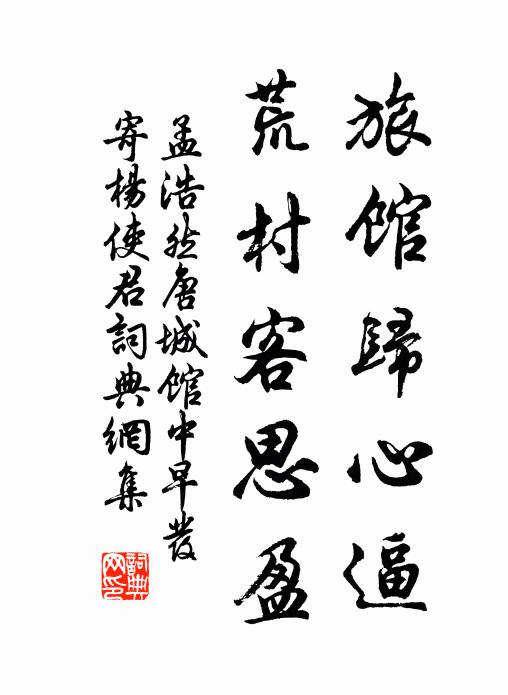 旅馆歸心逼
荒村客思盈
孟浩然唐城馆中早發
寄楊使君詞典網集
詞典
网印